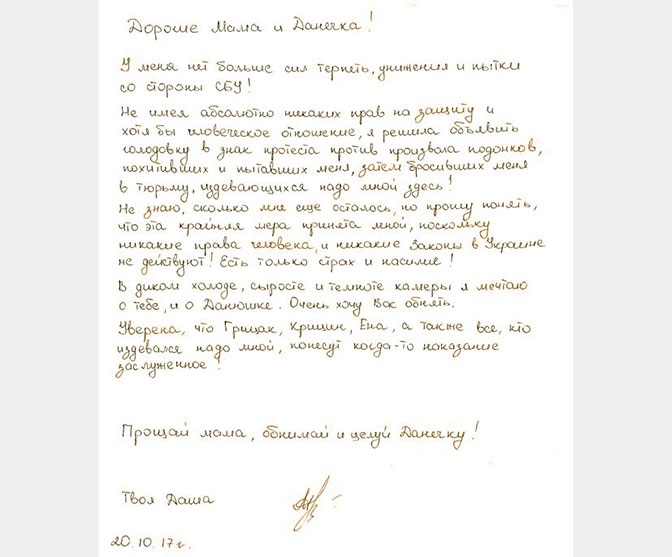 Дорогие Мама и Данечка!
У меня нет больше сил терпеть, унижения и пытки
со стороны СБУ!
Не имея абсолютно никаких прав на защиту и
хотя бы человеческое отношение, я решила объявить
голодовку в знак протеста против произвола подонков,
похитивших и пытавших меня, затем бросивших меня
в тюрьму, издевающихся надо мной здесь!
Не знаю, сколько мне еще осталось, но прошу понять,
что эта крайняя мера принята мной, поскольку
никакие права человека, и никакие Законы в Украине
не действуют! Есть только страх и насилие!
В диком холоде, сырости и темноте камеры я мечтаю
о тебе, и о Данюшке. Очень хочу Вас обнять.
Уверена, что Грицак, Крищин, Ена, а также все, кто
издевался надо мной, понесут когда-то наказание
заслуженное!
Прощай мама, обнимай и целуй Данечку!
Твоя Даша
20.10.17г.